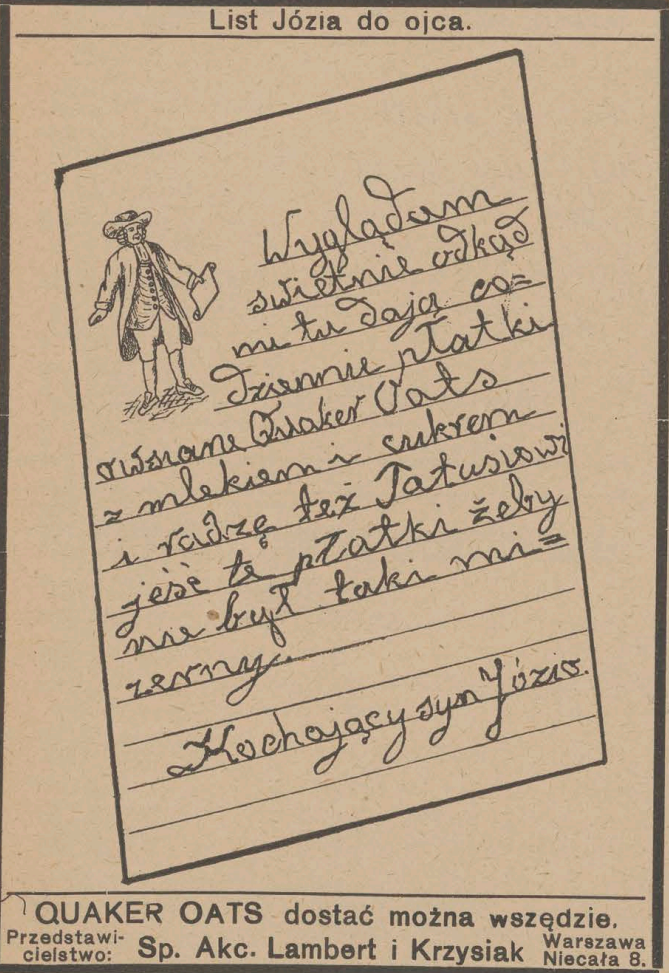 List Józia do ojca.
Wyglądam
swietnie odkąd
mi tu dają co=
dziennie płatki
owsiane Quaker Oats
z mlekiem i cukrem
i radzę też Tatusiowi
jeść te płatki żeby
nie był taki mi=
zerny.
Kochający syn Józio.
QUAKER OATS dostać można wszędzie.
Przedstawi-
cielstwo: Sp. Akc. Lambert i Krzysiak Warszawa
Niecała 8.